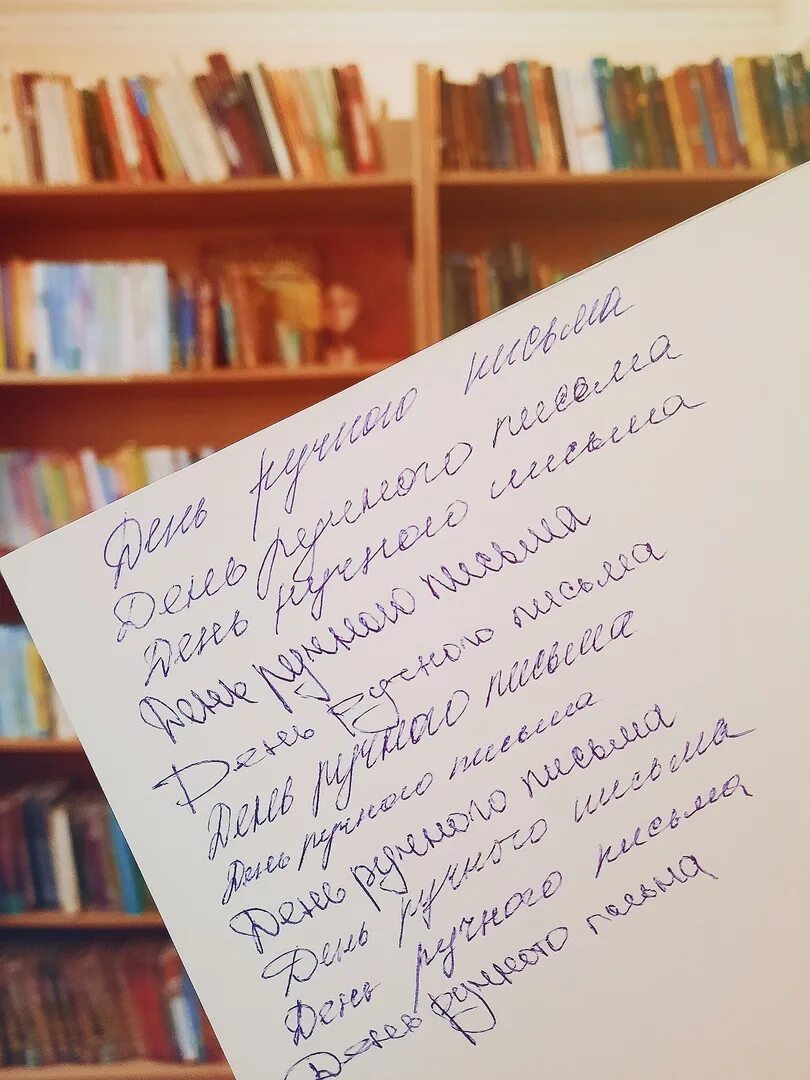 День ручного письма
День ручного письма
День ручного письма
День ручного письма
День ручного письма
День ручного письма
День ручного письма
День ручного письма
День ручного письма
День ручного письма
День ручного письма